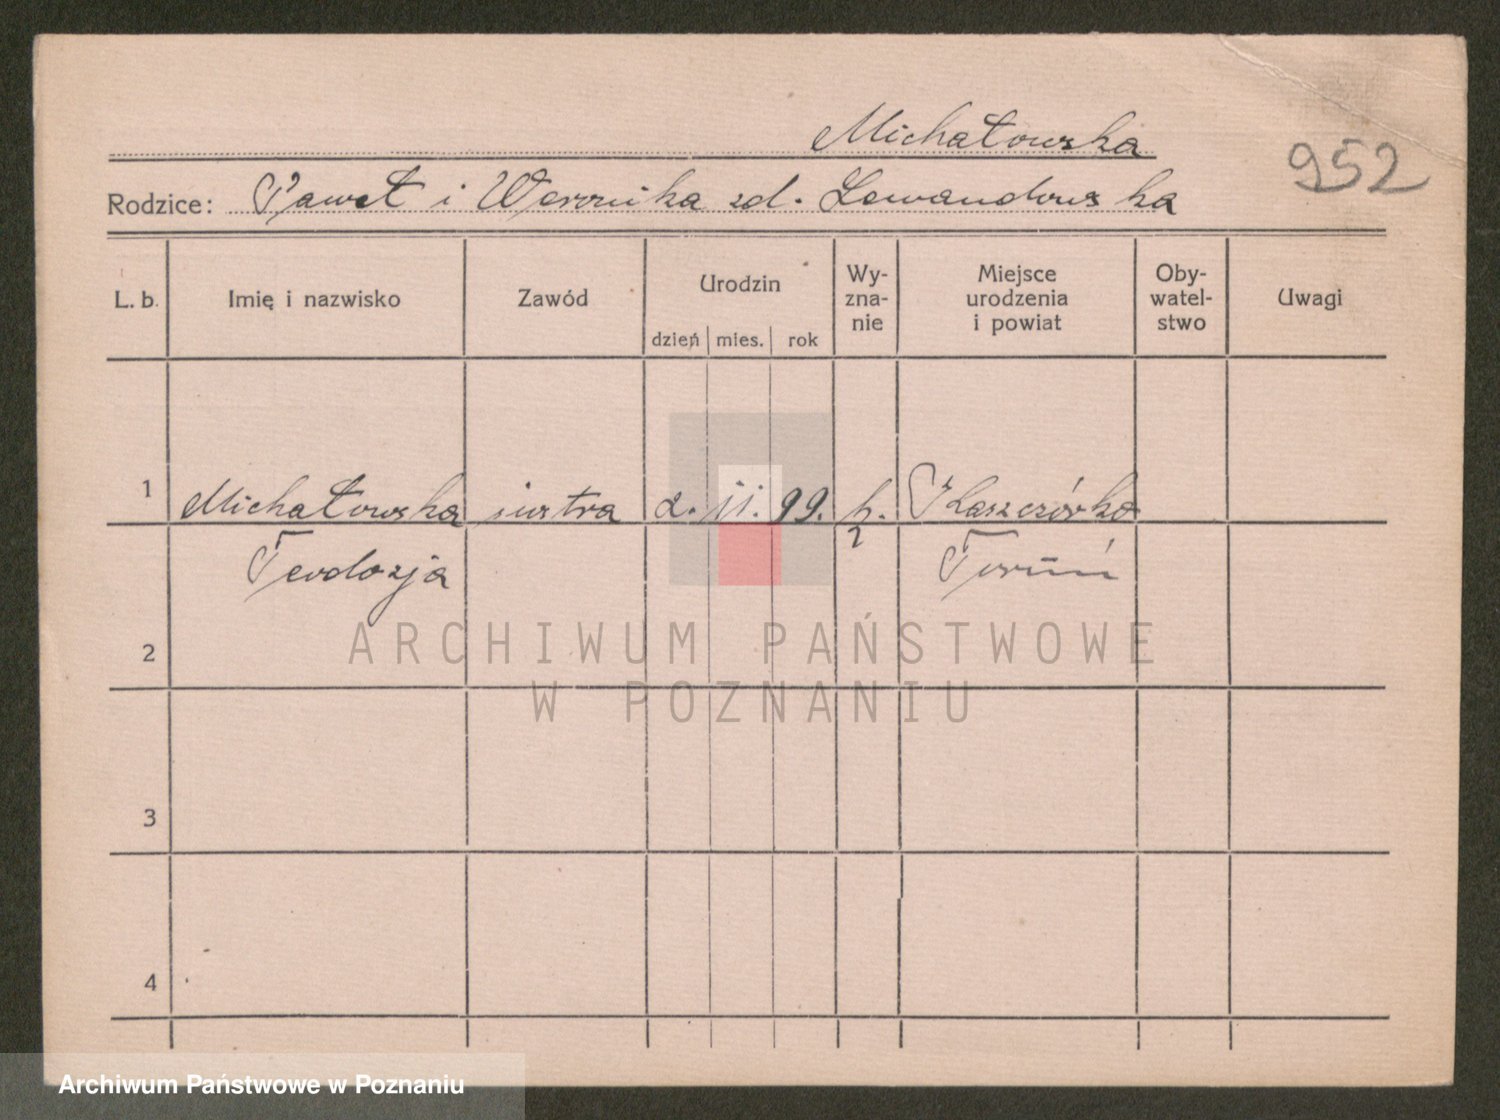 Michałowska
952
Rodzice: Paweł i Weronika zd. Lewandowska
L. b. Imię i nazwisko Zawód Urodzin dzień mies. rok Wy-zna-nie Miejsce urodzenia i powiat Oby-watel-stwo Uwagi
1 Michałowska siostra 2. 11. 99. k. Kaszczorek
Teodozja Toruń
2
3
4
ARCHIWUM PAŃSTWOWE
W POZNANIU
Archiwum Państwowe w Poznaniu